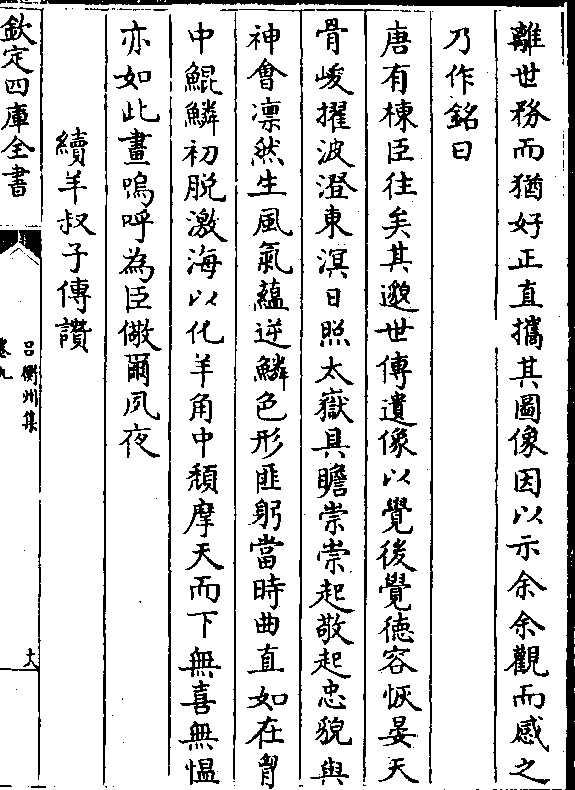 離世務而猶好正直攜其圖像因以示余余觀而感之
乃作銘曰
唐有棟臣往矣其邈世傳遺像以覺後覺德容恢晏天
骨峻擢波澄東溟日照太嶽具瞻崇崇起敬起忠貌與
神會凛然生風氣蘊逆鱗色形匪躬當時曲直如在胷
中鯤鱗初脱激海以化羊角中頽摩天而下無喜無愠
亦如此畫嗚呼為臣儆爾夙夜
續羊叔子傳讚
欽定四庫全書
吕衡州集
卷九
大